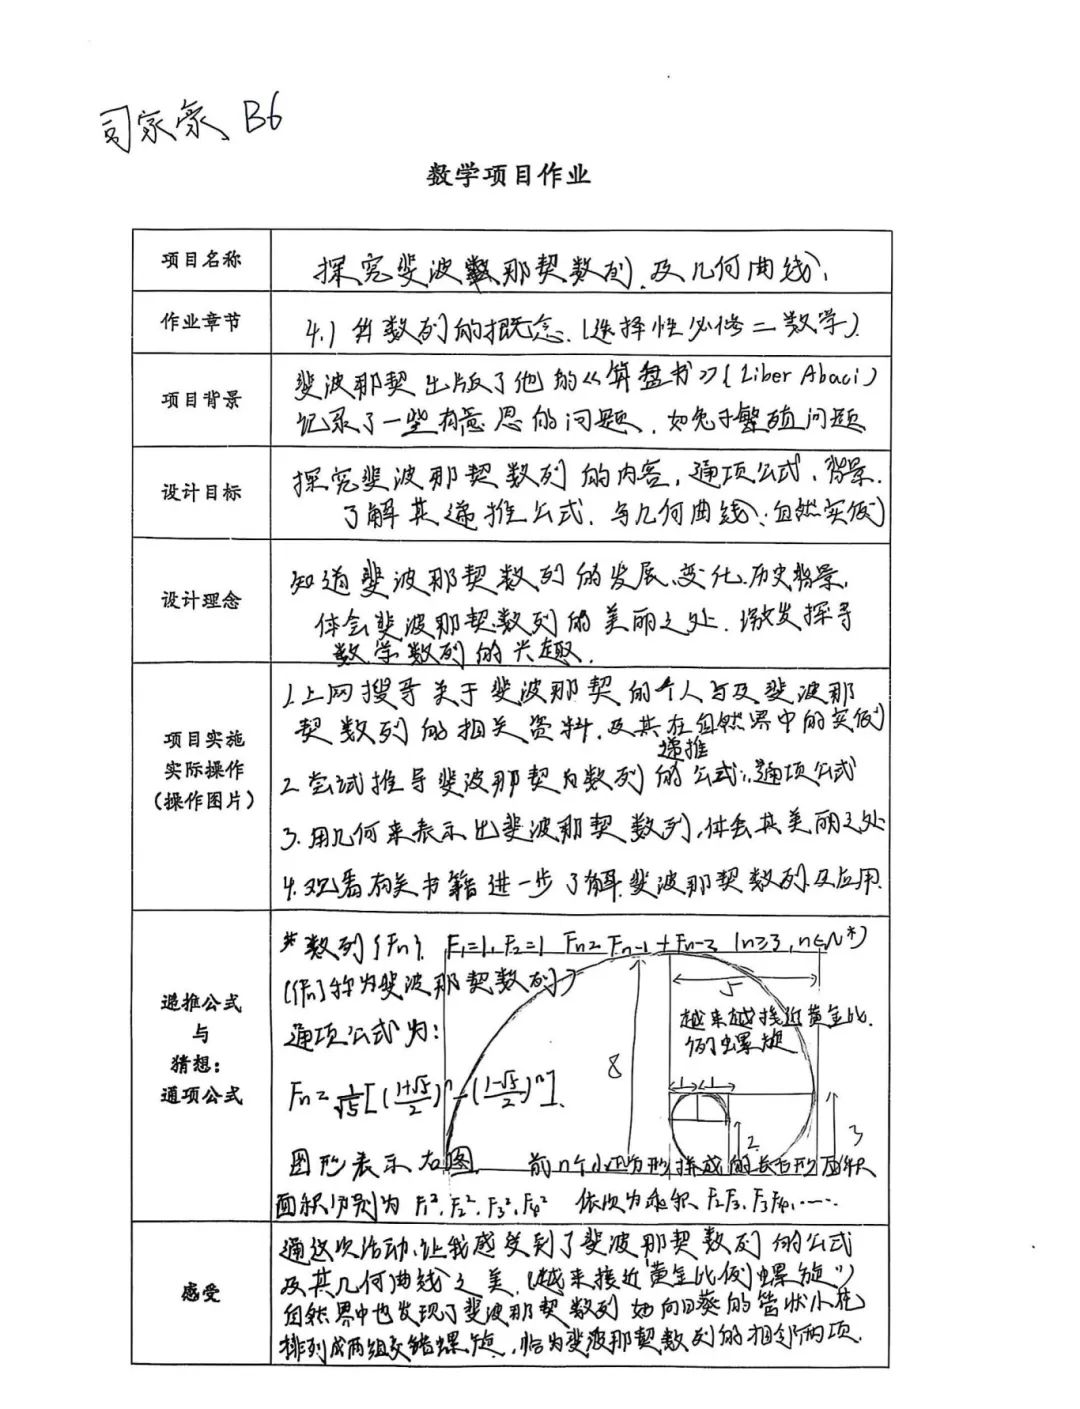 司家豪 B6
数学项目作业
项目名称
探究斐波那契数列及几何曲线
作业章节
4.1 数列的概念.(选择性必修二数学)
项目背景
斐波那契出版了他的《算盘书》(Liber Abaci)
记录了一些有意思的问题,如兔子繁殖问题
设计目标
探究斐波那契数列的内容,通项公式,背景.
了解其递推公式.与几何曲线、自然实例
设计理念
知道斐波那契数列的发展、变化、历史背景,
体会斐波那契数列的美丽之处.激发探寻
数学数列的兴趣.
项目实施
实际操作
(操作图片)
1.上网搜寻关于斐波那契的个人与及斐波那
契数列的相关资料.及其在自然界中的实例
递推
2.尝试推导斐波那契数列的公式、通项公式
3.用几何来表示出斐波那契数列,体会其美丽之处
4.观看有关书籍进一步了解斐波那契数列及应用.
递推公式
与
猜想:
通项公式
数列{Fn}, F₁=1, F₂=1 Fn=Fn-1+Fn-2 (n≥3,n∈N*)
({Fn}称为斐波那契数列)
5
越来越接近黄金比.
例螺旋
通项公式为:
8
Fn=1/√5[((1+√5)/2)ⁿ-((1-√5)/2)ⁿ].
1 1
2
3
图形表示右图. 前n个小正方形拼成的长方形面积
面积分别为 F₁²,F₂²,F₃²,F₄² 依次为乘积 F₂F₃,F₃F₄,……
感受
通这次活动,让我感受到了斐波那契数列的公式
及其几何曲线之美.(越来接近"黄金比例螺旋")
自然界中也发现了斐波那契数列 如向日葵的管状小花
排列成两组交错螺旋,恰为斐波那契数列的相邻两项.